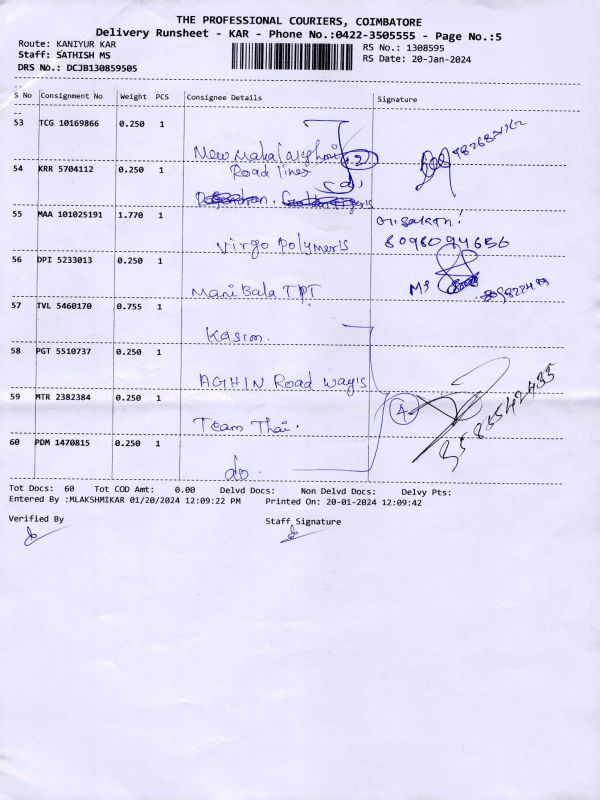 THE PROFESSIONAL COURIERS, COIMBATORE
Delivery Runsheet - KAR - Phone No.:0422-3505555 - Page No.:5
Route: KANIYUR KAR
RS No.: 1308595
Staff: SATHISH MS
RS Date: 20-Jan-2024
DRS No.: DCJB130859505
S No Consignment No Weight PCS Consignee Details Signature
53 TCG 10169866 0.250 1
New
Road lines
2
54 KRR 5704112 0.250 1
55 MAA 101025191 1.770 1
Virgo Polymers
8098094656
56 DPI 5233013 0.250 1
Mani Bala TPT
Ms
57 TVL 5460170 0.755 1
Kasim.
58 PGT 5510737 0.250 1
Road way's
59 MTR 2382384 0.250 1
4
Team Thai.
9585542435
60 PDM 1470815 0.250 1
do.
Tot Docs: 60 Tot COD Amt: 0.00 Delvd Docs: Non Delvd Docs: Delvy Pts:
Entered By :MLAKSHMIKAR 01/20/2024 12:09:22 PM Printed On: 20-01-2024 12:09:42
Verified By
Staff Signature